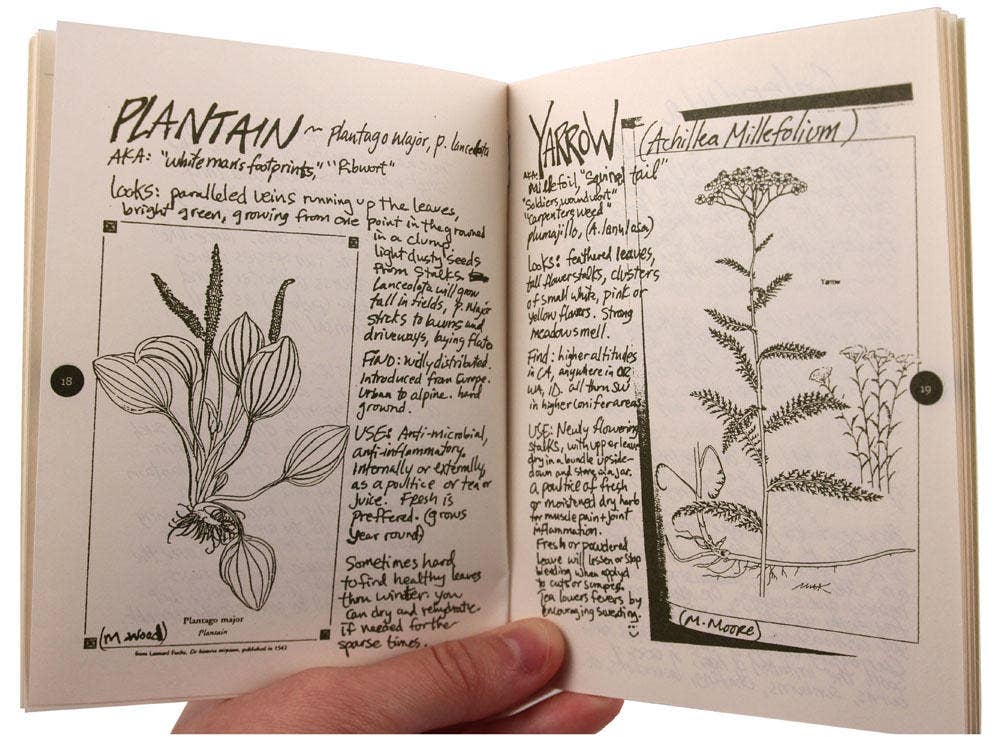 PLANTAIN ~ Plantago Major, P. lanceolata
AKA: "whiteman's footprints," "Ribwort"
Looks: paralleled veins running up the leaves,
bright green, growing from one point in the ground
in a clump,
light dusty seeds
from stalks
Lanceolata will grow
tall in fields, P. Major
sticks to lawns and
driveways, laying flat
FIND: widly distributed.
Introduced from Europe.
Urban to alpine. hard
ground.
USES: Anti-microbial,
anti-inflammatory.
Internally or externally,
as a poultice or tea or
juice. Fresh is
preffered. (grows
year round)
Sometimes hard
to find healthy leaves
thru winter. you
can dry and rehydrate
if needed for the
sparse times.
18
Plantago major
Plantain
(M. Wood)
from Leonard Fuchs, De historia stirpium, published in 1542
YARROW (Achillea Millefolium)
AKA:
Millefoil, "Squirrel tail"
"Soldiers woundwort"
"Carpenters weed"
plumajillo, (A. lanulasa)
Looks: feathered leaves,
tall flower stalks, clusters
of small white, pink or
yellow flowers. Strong
meadow smell.
Find: higher altitudes
in CA, anywhere in OR
WA, ID. all thru SW
in higher conifer areas
USE: Newly flowering
stalks, with upper leaves
dry in a bundle upside-
down and store in a jar.
a poultice of fresh
or moistened dry herb
for muscle pain + joint
inflammation.
Fresh or powdered
leave will lessen or stop
bleeding when applied
to cuts or scrapes.
Tea lowers fevers by
encouraging sweating.
Yarrow
19
(M. MOORE)